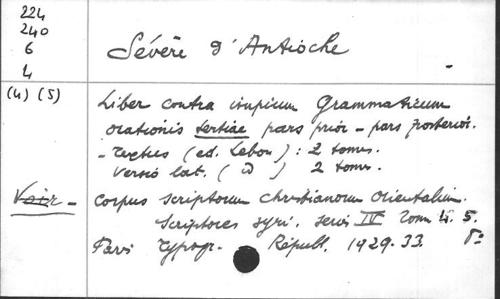 224
240
6
4
Sévère d'Antioche
(4) (5)
Liber contra impium Grammaticum
orationis tertiae pars prior - pars posterior.
- textus (ed. Lebon) : 2 tomes.
versio lat. ( ) 2 tomes.
Voir - Corpus scriptorum christianorum orientalium.
Scriptores syri. series IV Tom 4. 5.
Paris typogr. Républ. 1929-33. 8°